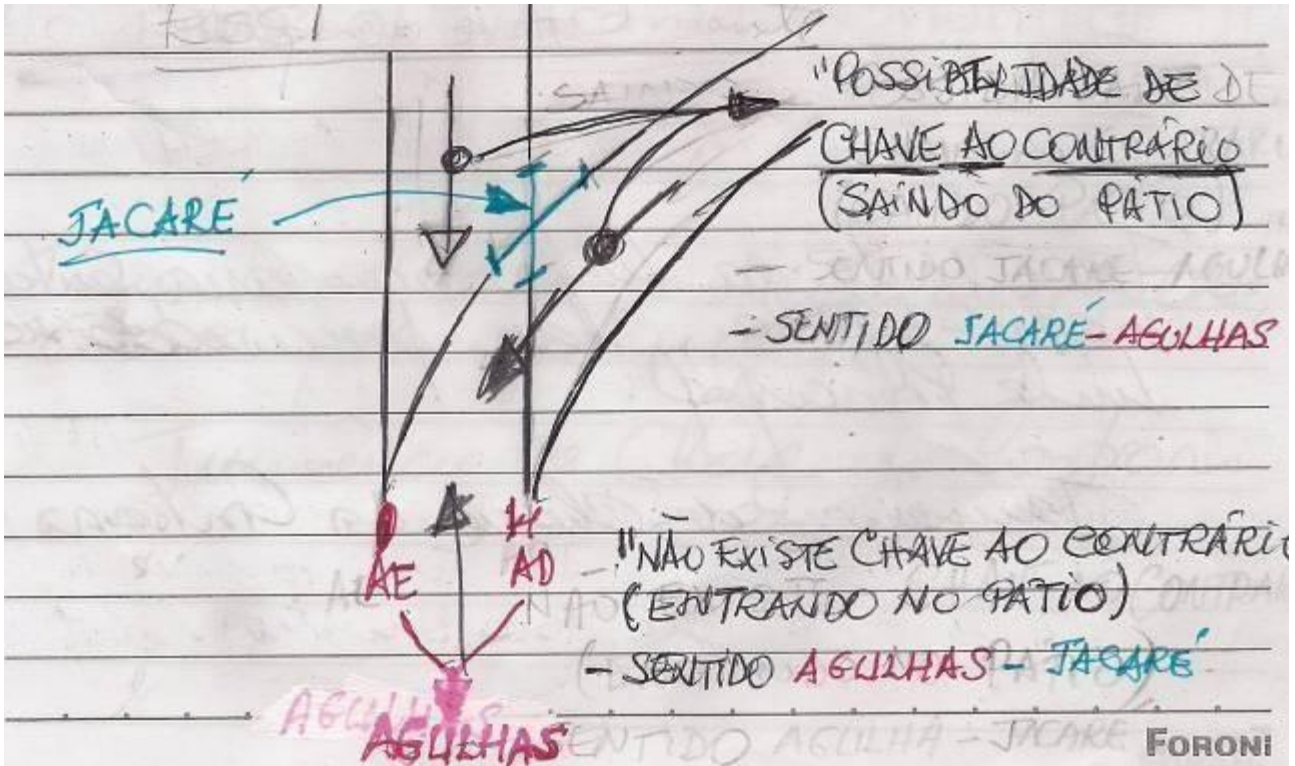 "POSSIBILIDADE DE
CHAVE AO CONTRÁRIO
(SAÍNDO DO PÁTIO)
JACARÉ
- SENTIDO JACARÉ-AGULHAS
AE
AD
"NÃO EXISTE CHAVE AO CONTRÁRIO
(ENTRANDO NO PÁTIO)
- SENTIDO AGULHAS - JACARÉ
AGULHAS
AGULHAS
FORONI